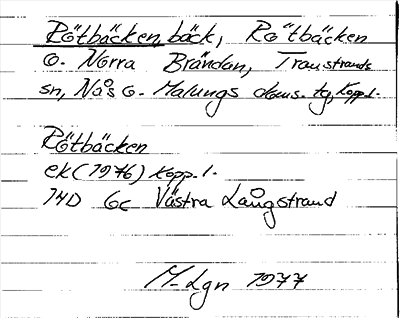 Rötbäcken, bäck, Rötbäcken
o. Norra Brändan, Transtrands
sn, Nås o. Malungs doms. tg, Kopp.l.
Rötbäcken
ek (1976) Kopp.l.
14D 6c Västra Långstrand
M-Lgn 1977